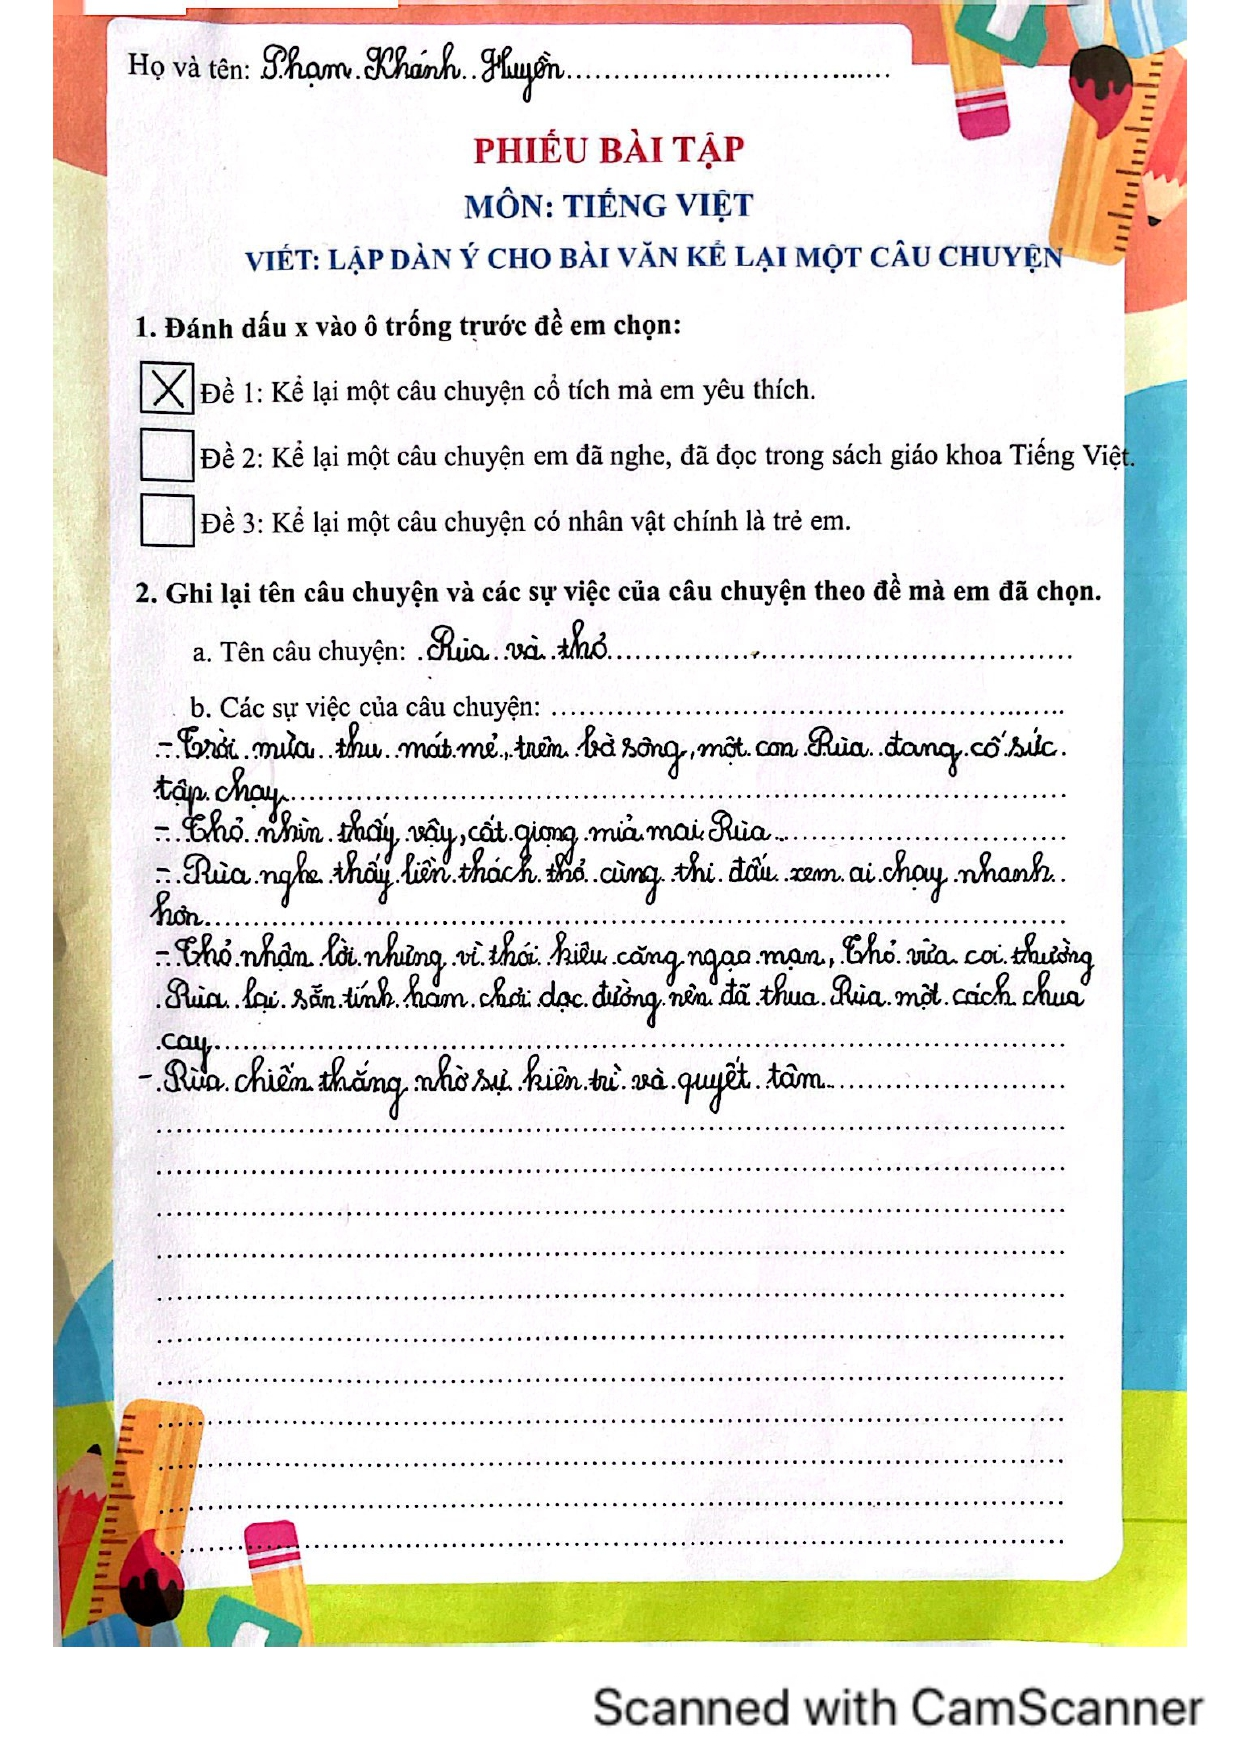 Họ và tên: Phạm Khánh Huyền
PHIẾU BÀI TẬP
MÔN: TIẾNG VIỆT
VIẾT: LẬP DÀN Ý CHO BÀI VĂN KỂ LẠI MỘT CÂU CHUYỆN
1. Đánh dấu x vào ô trống trước đề em chọn:
X Đề 1: Kể lại một câu chuyện cổ tích mà em yêu thích.
Đề 2: Kể lại một câu chuyện em đã nghe, đã đọc trong sách giáo khoa Tiếng Việt.
Đề 3: Kể lại một câu chuyện có nhân vật chính là trẻ em.
2. Ghi lại tên câu chuyện và các sự việc của câu chuyện theo đề mà em đã chọn.
a. Tên câu chuyện: Rùa và thỏ
b. Các sự việc của câu chuyện:
- Trời mùa thu mát mẻ, trên bờ sông, một con Rùa đang cố sức
tập chạy.
- Thỏ nhìn thấy vậy, cất giọng mỉa mai Rùa.
- Rùa nghe thấy liền thách thỏ cùng thi đấu xem ai chạy nhanh
hơn.
- Thỏ nhận lời nhưng vì thói kiêu căng ngạo mạn, Thỏ vừa coi thường
Rùa lại sẵn tính ham chơi dọc đường nên đã thua Rùa một cách chua
cay.
- Rùa chiến thắng nhờ sự kiên trì và quyết tâm.
Scanned with CamScanner